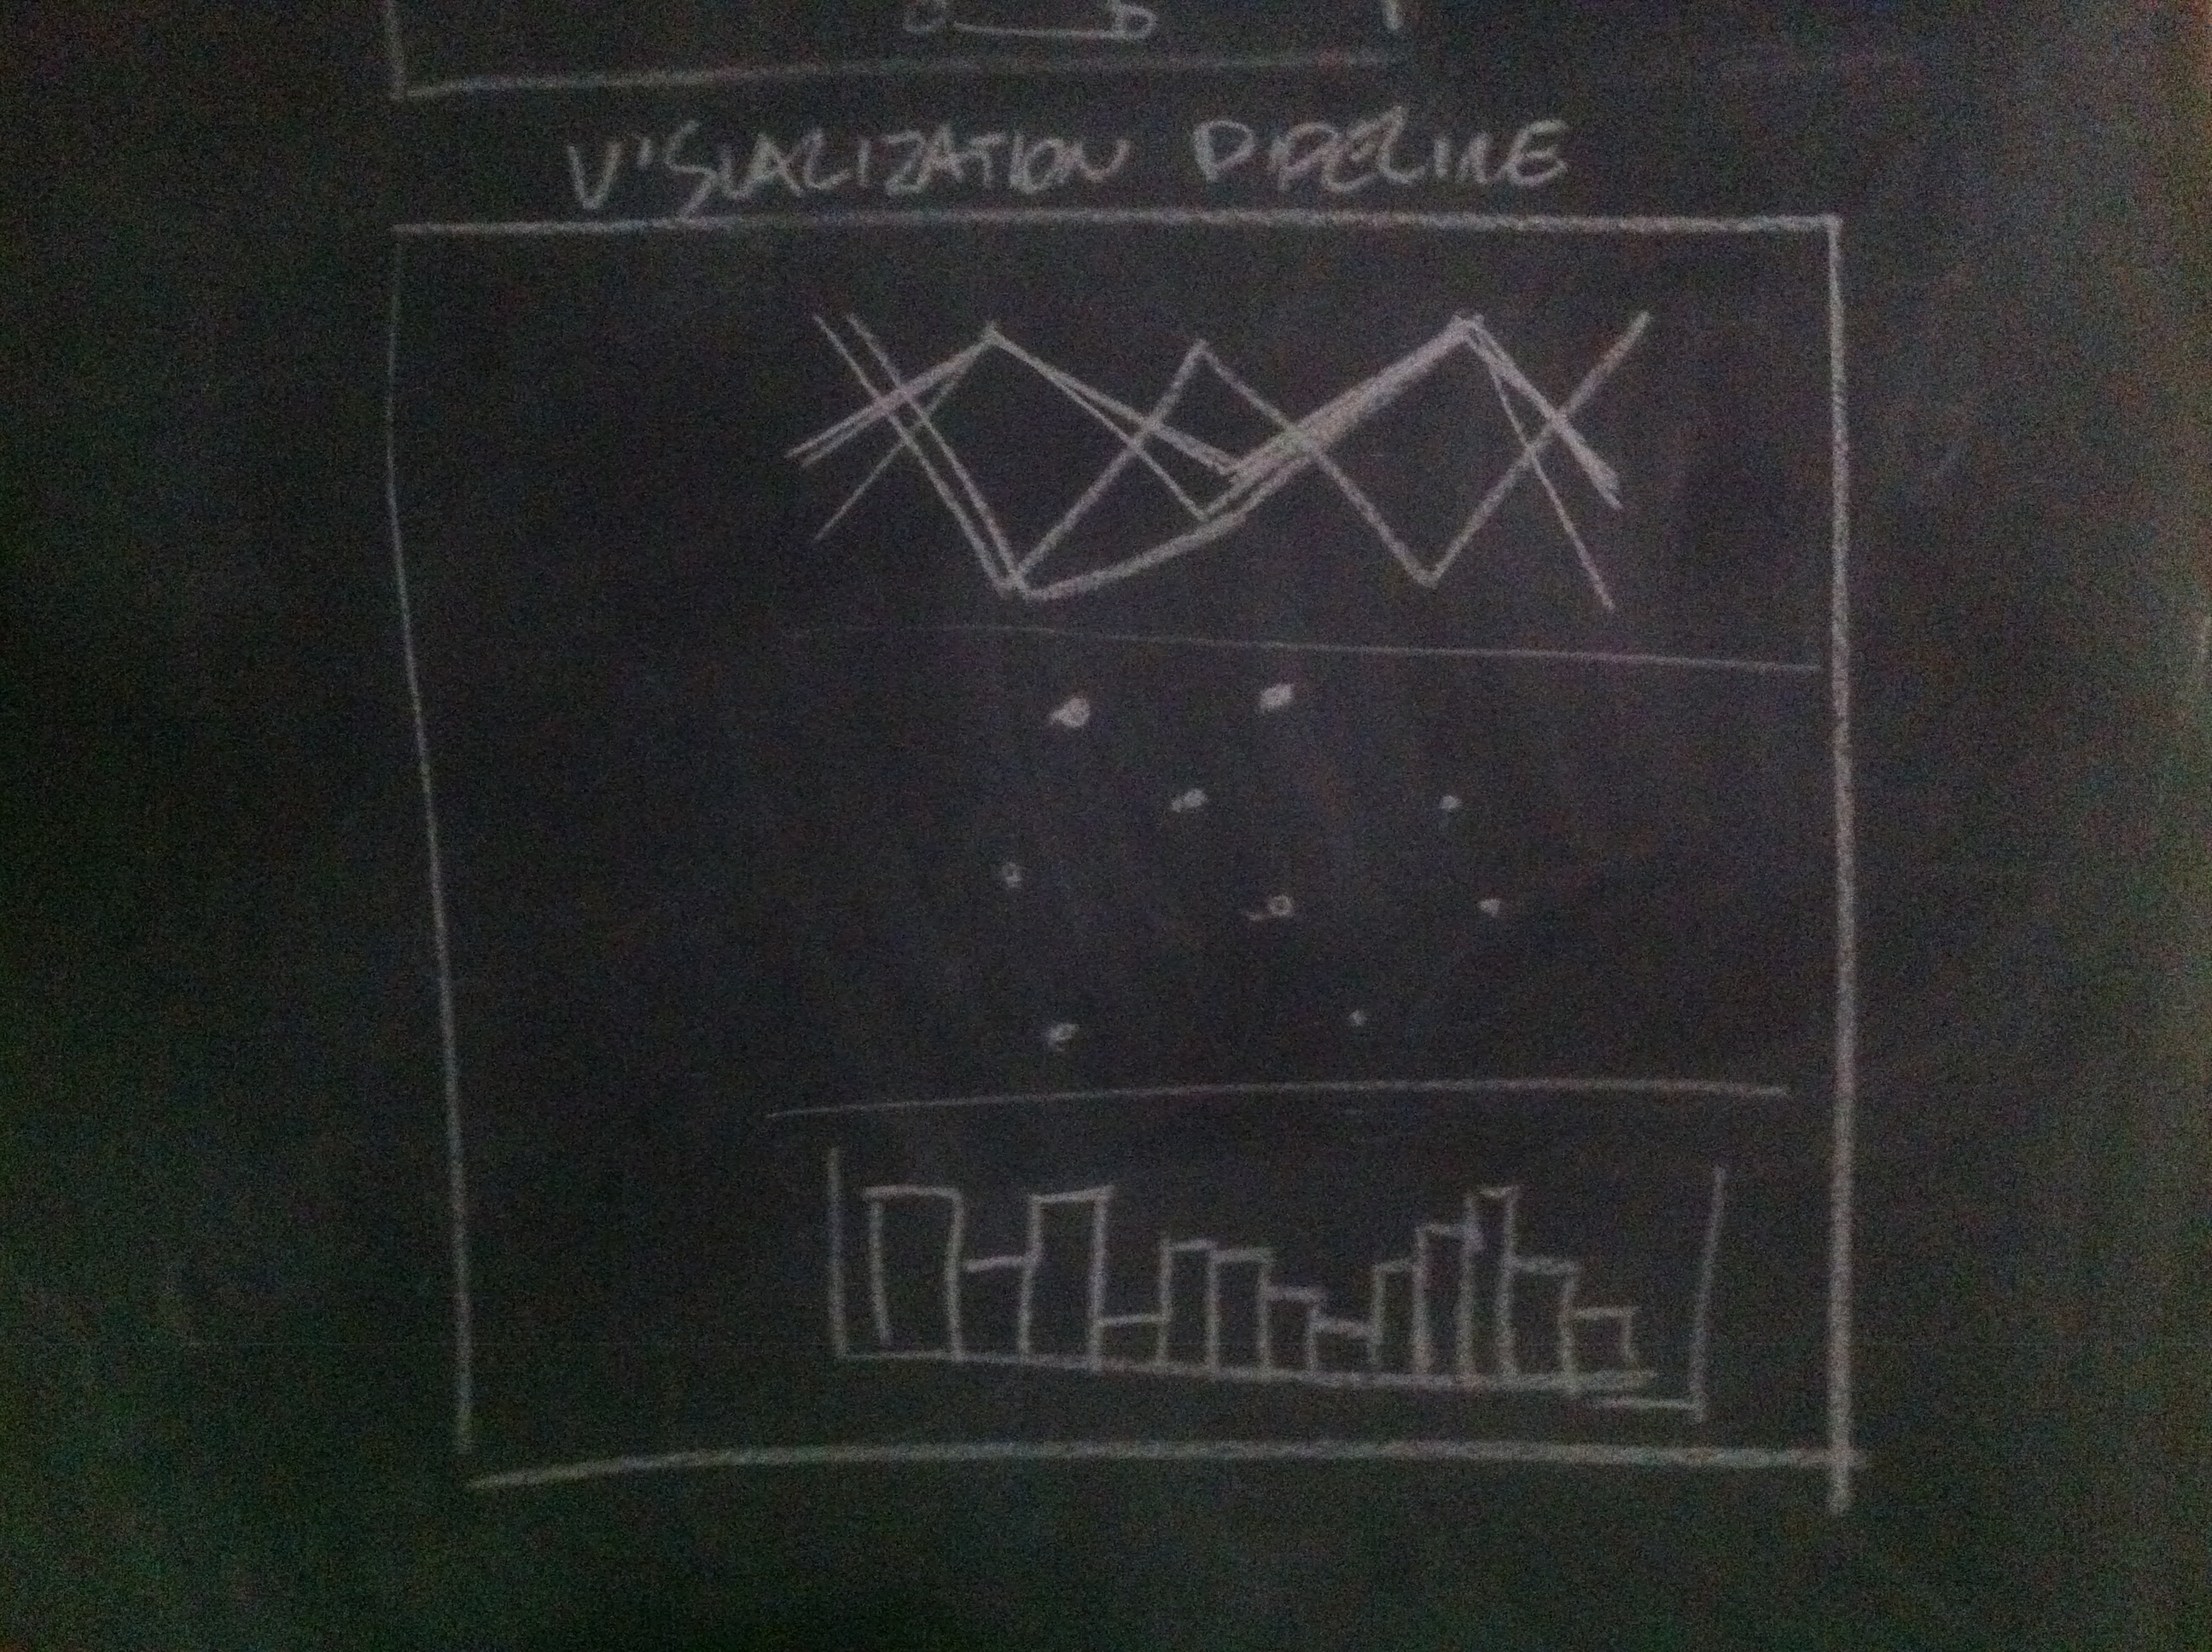 VISUALIZATION PIPELINE